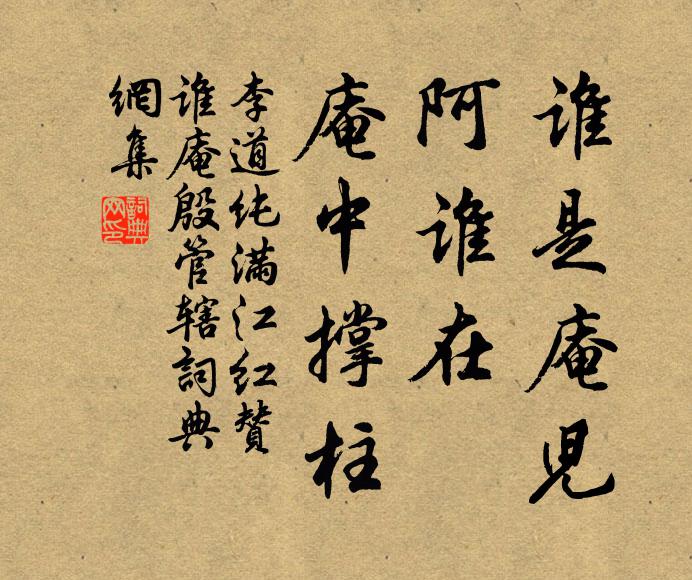 誰是庵兒
阿誰在
庵中撐柱
李道純滿江紅贊
誰庵殷管轄詞典
網集
詞典网印